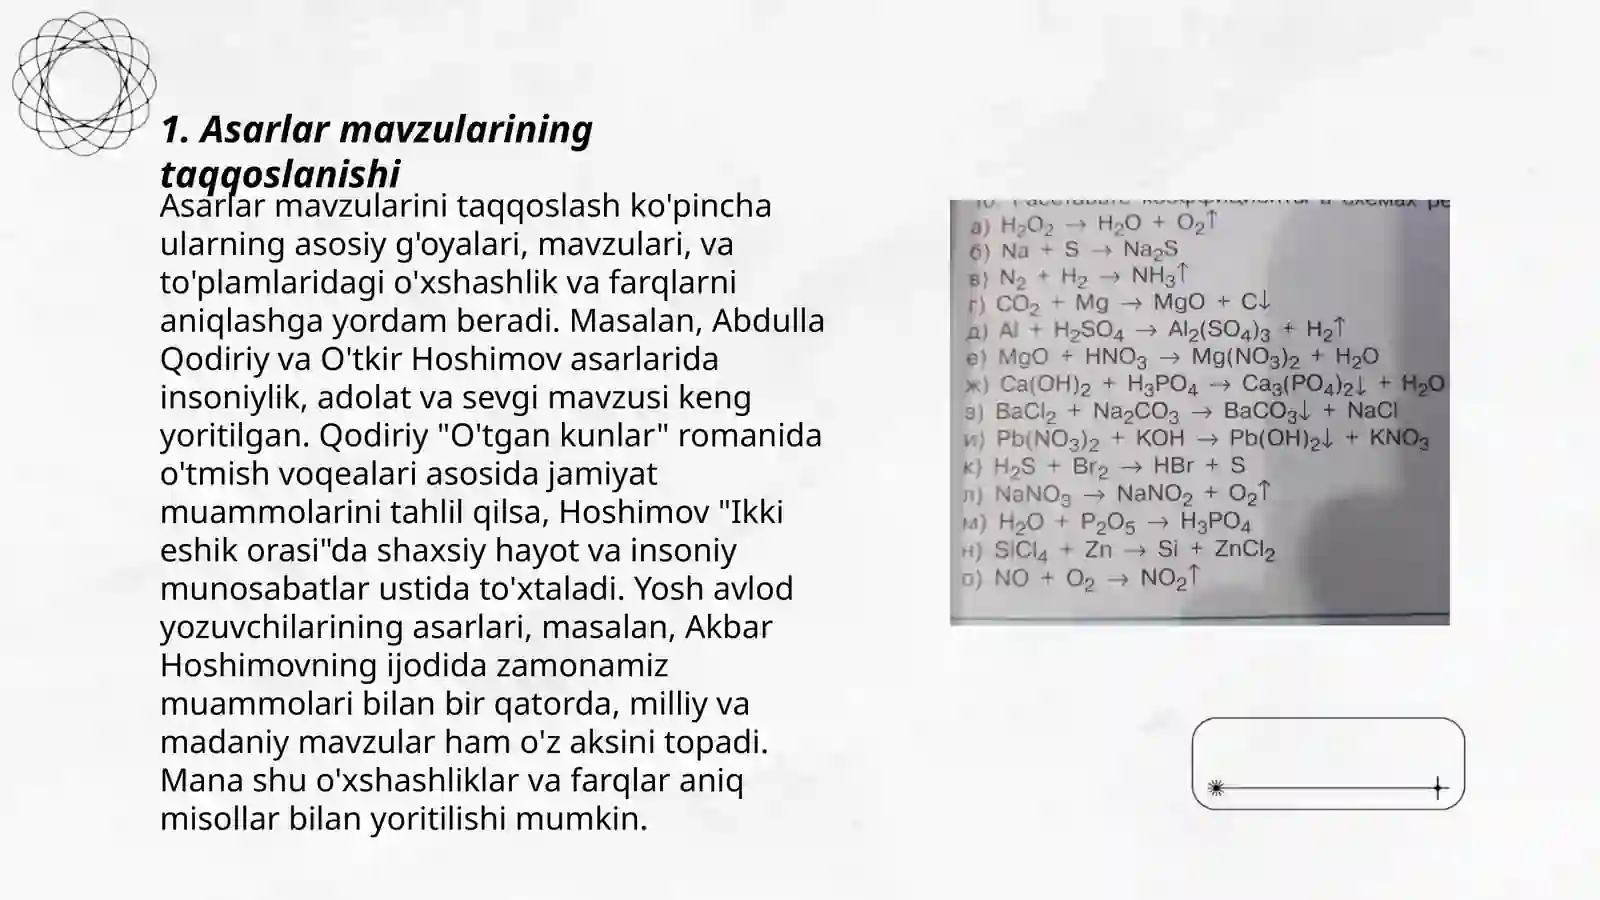 1. Asarlar mavzularining
taqqoslanishi
Asarlar mavzularini taqqoslash ko'pincha
ularning asosiy g'oyalari, mavzulari, va
to'plamlaridagi o'xshashlik va farqlarni
aniqlashga yordam beradi. Masalan, Abdulla
Qodiriy va O'tkir Hoshimov asarlarida
insoniylik, adolat va sevgi mavzusi keng
yoritilgan. Qodiriy "O'tgan kunlar" romanida
o'tmish voqealari asosida jamiyat
muammolarini tahlil qilsa, Hoshimov "Ikki
eshik orasi"da shaxsiy hayot va insoniy
munosabatlar ustida to'xtaladi. Yosh avlod
yozuvchilarining asarlari, masalan, Akbar
Hoshimovning ijodida zamonamiz
muammolari bilan bir qatorda, milliy va
madaniy mavzular ham o'z aksini topadi.
Mana shu o'xshashliklar va farqlar aniq
misollar bilan yoritilishi mumkin.
а) H₂O₂ → H₂O + O₂↑
б) Na + S → Na₂S
в) N₂ + H₂ → NH₃↑
г) CO₂ + Mg → MgO + C↓
д) Al + H₂SO₄ → Al₂(SO₄)₃ + H₂↑
е) MgO + HNO₃ → Mg(NO₃)₂ + H₂O
ж) Ca(OH)₂ + H₃PO₄ → Ca₃(PO₄)₂↓ + H₂O
з) BaCl₂ + Na₂CO₃ → BaCO₃↓ + NaCl
и) Pb(NO₃)₂ + KOH → Pb(OH)₂↓ + KNO₃
к) H₂S + Br₂ → HBr + S
л) NaNO₃ → NaNO₂ + O₂↑
м) H₂O + P₂O₅ → H₃PO₄
н) SiCl₄ + Zn → Si + ZnCl₂
о) NO + O₂ → NO₂↑